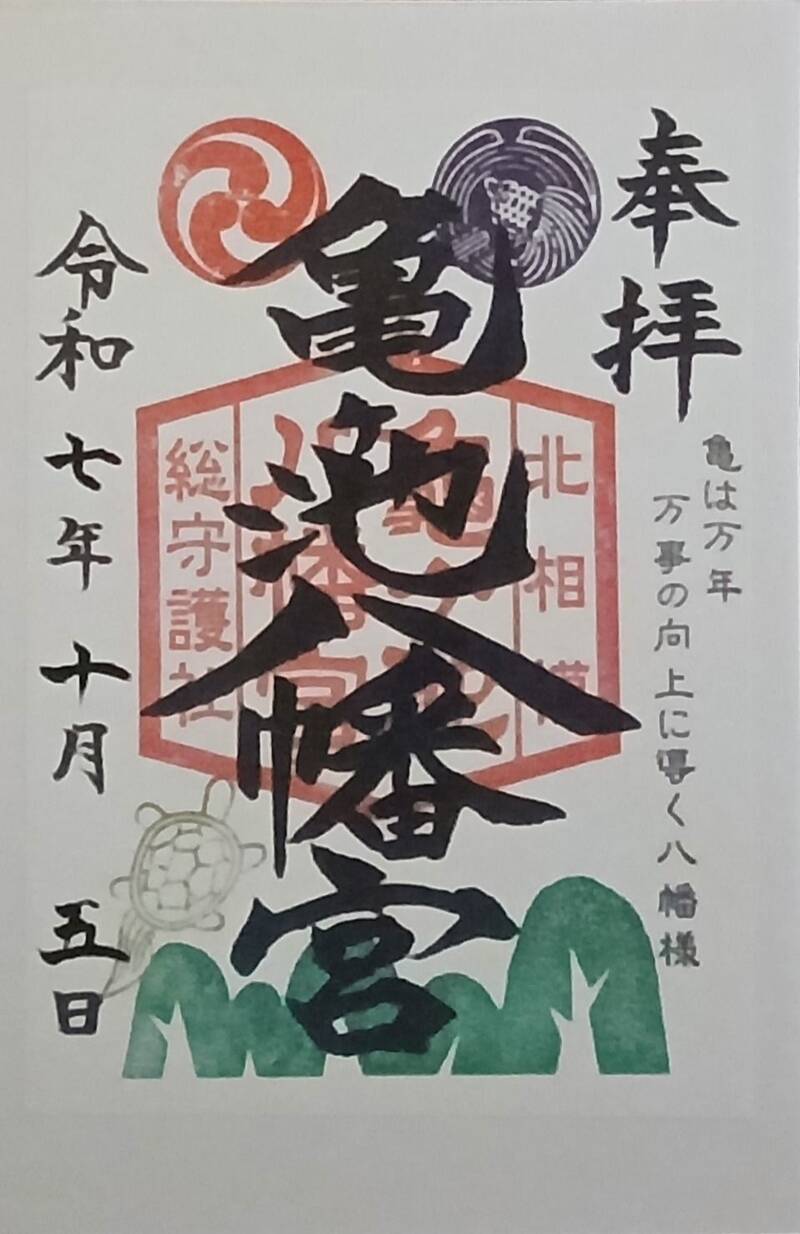 奉拝
亀は万年
万事の向上に導く八幡様
亀池八幡宮
北相模
亀ヶ池
八幡宮
総守護社
令和七年十月五日